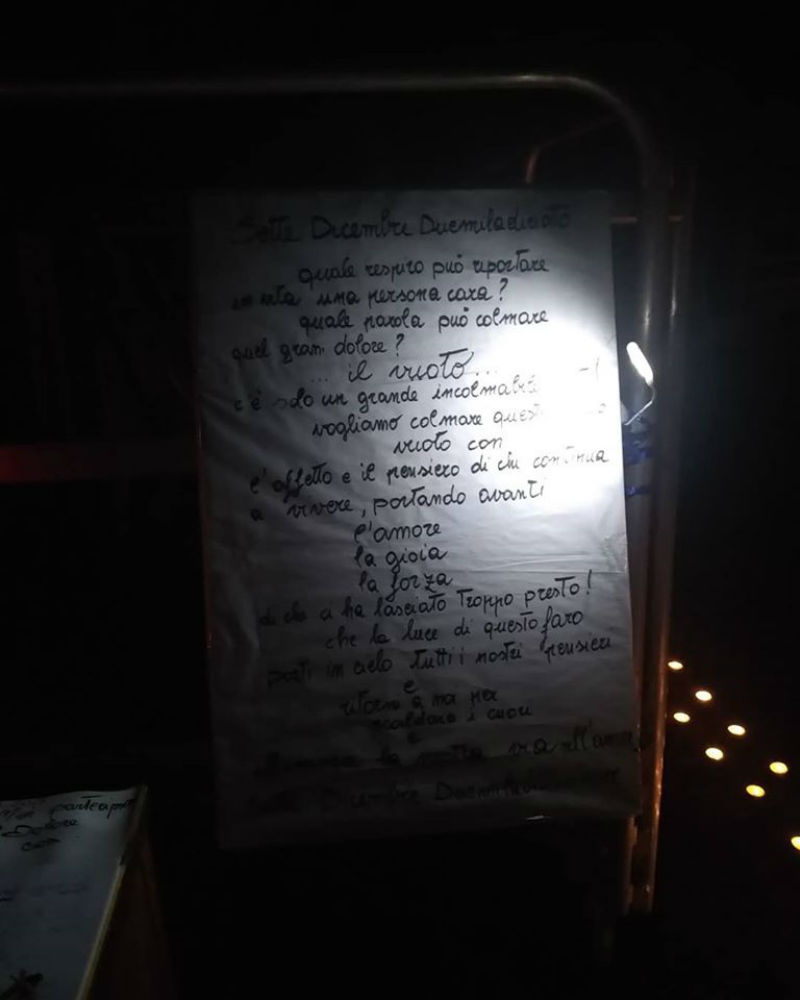 Sette Dicembre Duemiladiciotto
quale respiro può riportare
in vita una persona cara?
quale parola può colmare
quel gran dolore?
... il vuoto...
c'è solo un grande incolmabile
vogliamo colmare questo
vuoto con
l'affetto e il pensiero di chi continua
a vivere, portando avanti
l'amore
la gioia
la forza
di chi ci ha lasciato troppo presto!
che la luce di questo faro
porti in cielo tutti i nostri pensieri
e
ritorni a noi per
scaldare i cuori
e
la via all'amore
Dicembre
partecip
Dolore
con